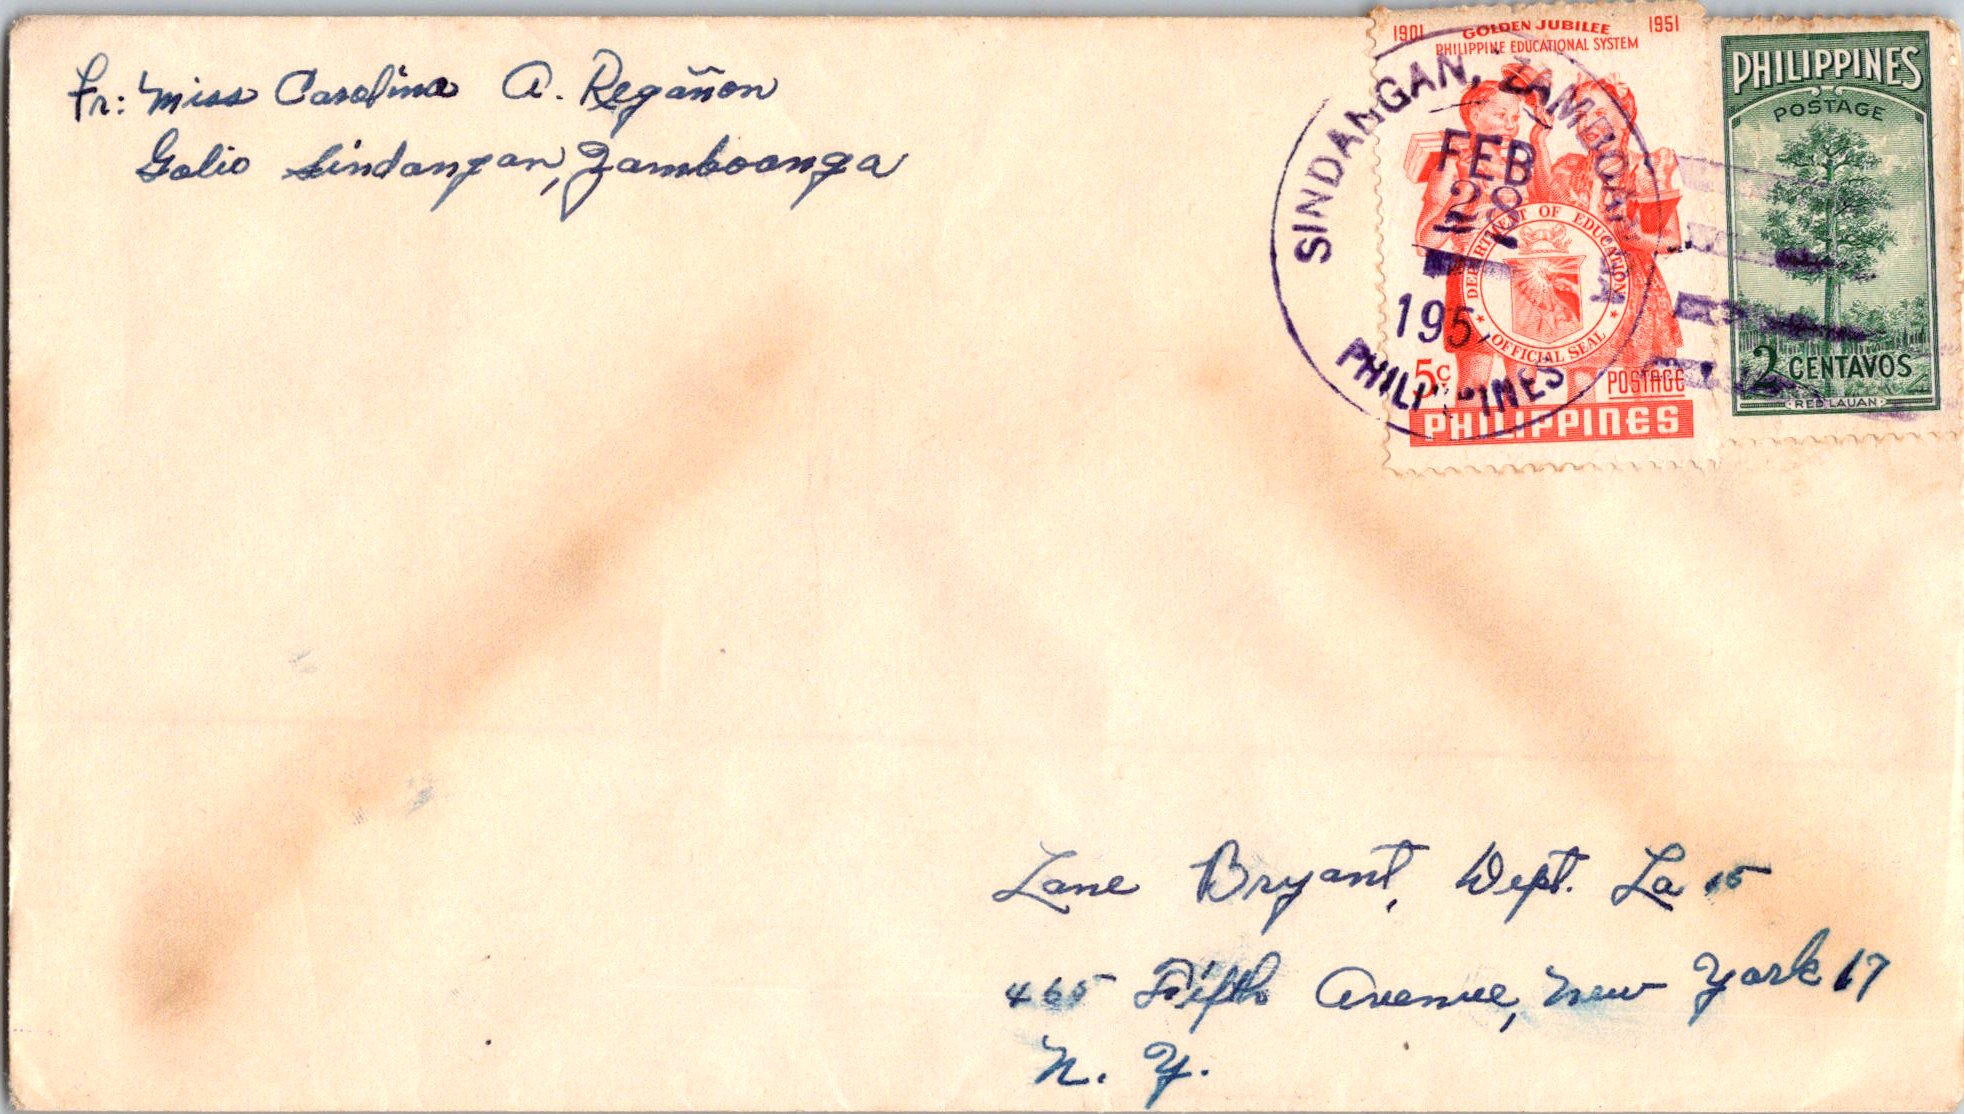 Fr: Miss Carolina A. Regañon
Galio Sindangan, Zamboanga
1901 GOLDEN JUBILEE 1951
PHILIPPINE EDUCATIONAL SYSTEM
DEPARTMENT OF EDUCATION
OFFICIAL SEAL
5c POSTAGE
PHILIPPINES
PHILIPPINES
POSTAGE
2 CENTAVOS
RED LAUAN
SINDANGAN, ZAMBOANGA
FEB
28
195
PHILIPPINES
Lane Bryant, Dept. La 15
465 Fifth Avenue, New York 17
N. Y.